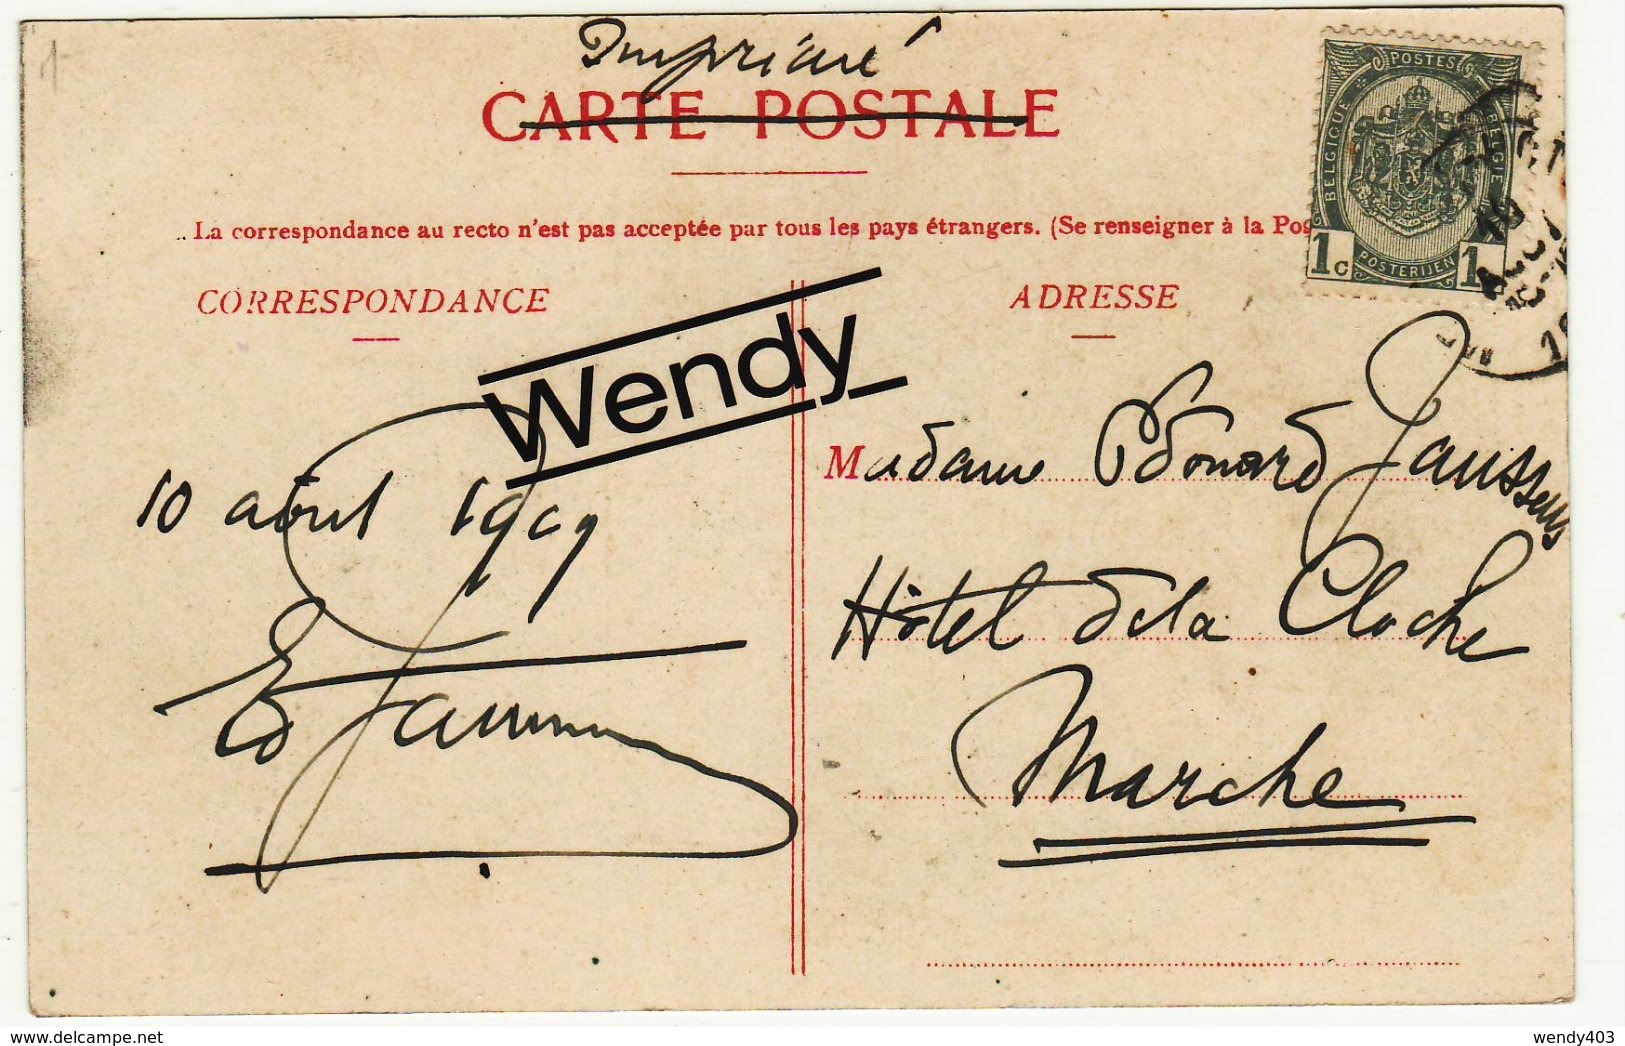 1
Imprimé
CARTE POSTALE
La correspondance au recto n'est pas acceptée par tous les pays étrangers. (Se renseigner à la Pos
POSTES
BELGIQUE
BELGIE
1c
POSTERIJEN
1
CORRESPONDANCE
ADRESSE
Wendy
10 août 1909
Madame Edouard Janssens
Hôtel de la Cloche
Marche
delcampe.net
wendy403